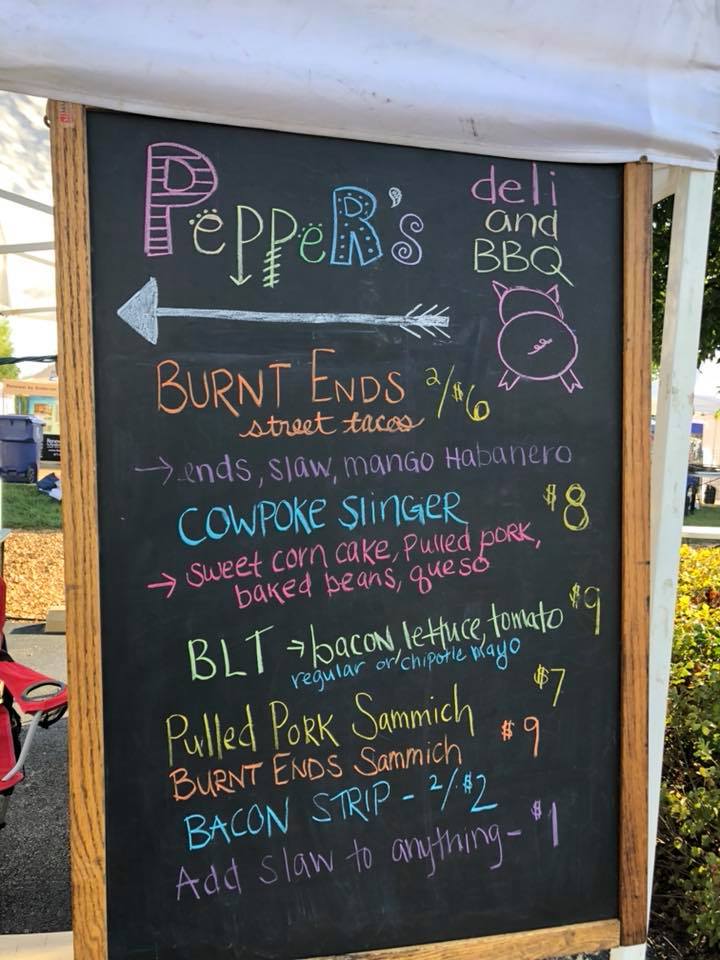 PePPeR's
deli
and
BBQ
BURNT ENDS 2/$6
street tacos
→ ends, slaw, mango Habanero
COWPOKE SlINGER $8
→ sweet corn cake, Pulled pork,
baked beans, queso
BLT → bacon, lettuce, tomato $9
regular or/chipotle mayo
Pulled PORK Sammich $7
BURNT ENDS Sammich $9
BACON STRIP - 2/$2
Add slaw to anything - $1